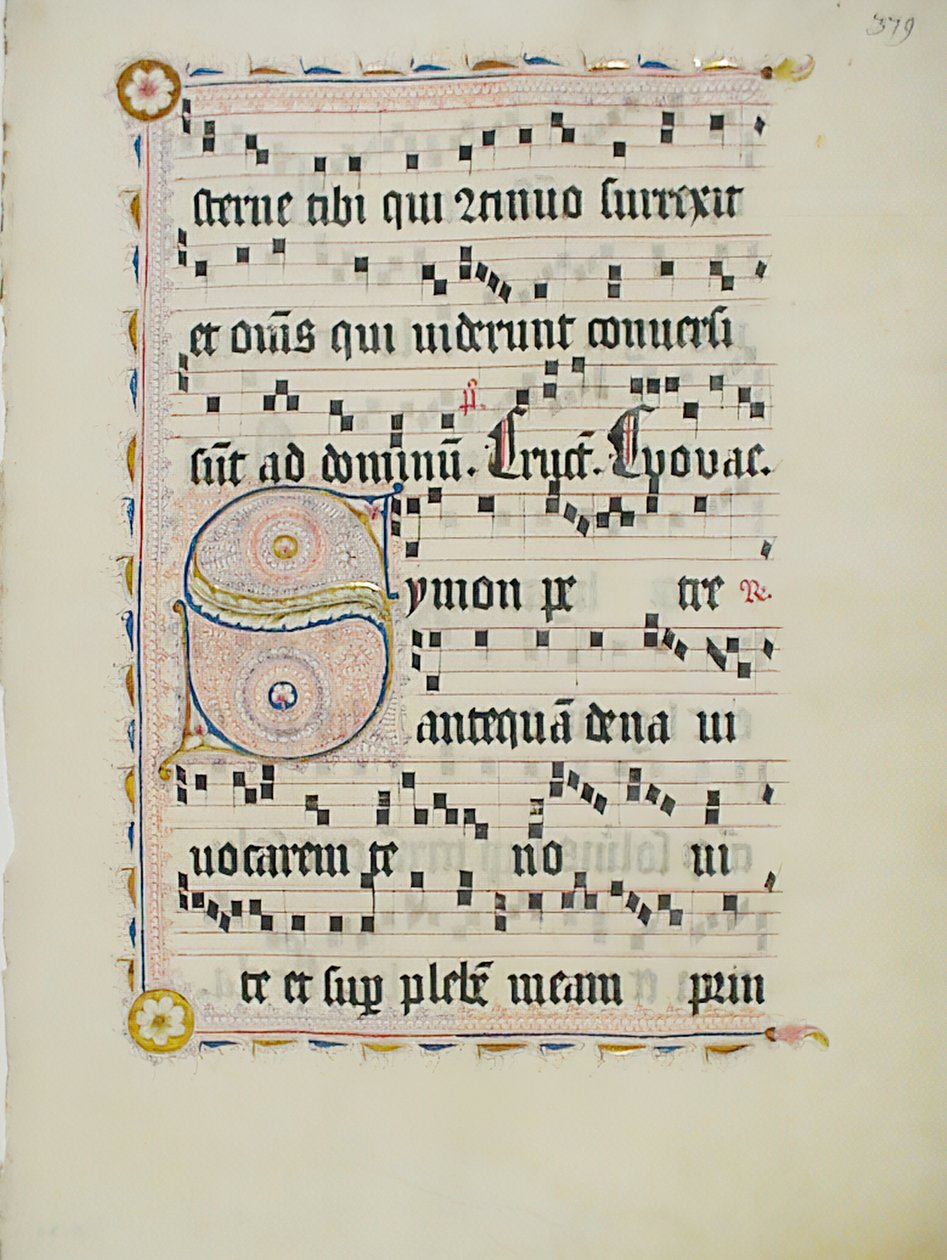 379
sterne tibi qui ꝯtinuo surrexit
et om̄s qui uiderunt conuersi
sūt ad dominū. p̄s. Eruct̄. Euouae.
Symon pe tre ℟.
antequā dena ui
uocarem te no ui
te et suꝑ plebē meam prin